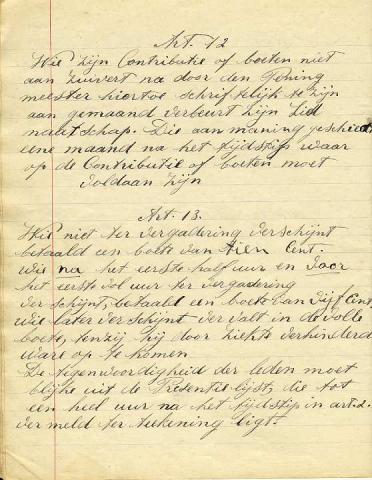 Art. 12
Wie zijn Contributie of boeten niet
aan zuivert na door den Pening
meester hiertoe schriftelijk te zijn
aan gemaand verbeurt zijn Lid
maatschap. Die aan maning geschied
eene maand na het tijdstip waar
op de Contributie of boeten moet
voldaan zijn
Art. 13.
Wie niet ter vergadering verschijnt
betaald een boete van tien Cent.
wie na het eerste half uur en voor
het eerste vol uur ter vergadering
verschijnt, betaald een boete van vijf Cent,
wie later verschijnt vervalt in de volle
boete, tenzij hij door ziekte verhinderd
ware op te komen
De tegenwoordigheid der leden moet
blijke uit de Presentielijst, die tot
een heel uur na het tijdstip in art. 2.
vermeld ter teekening ligt.